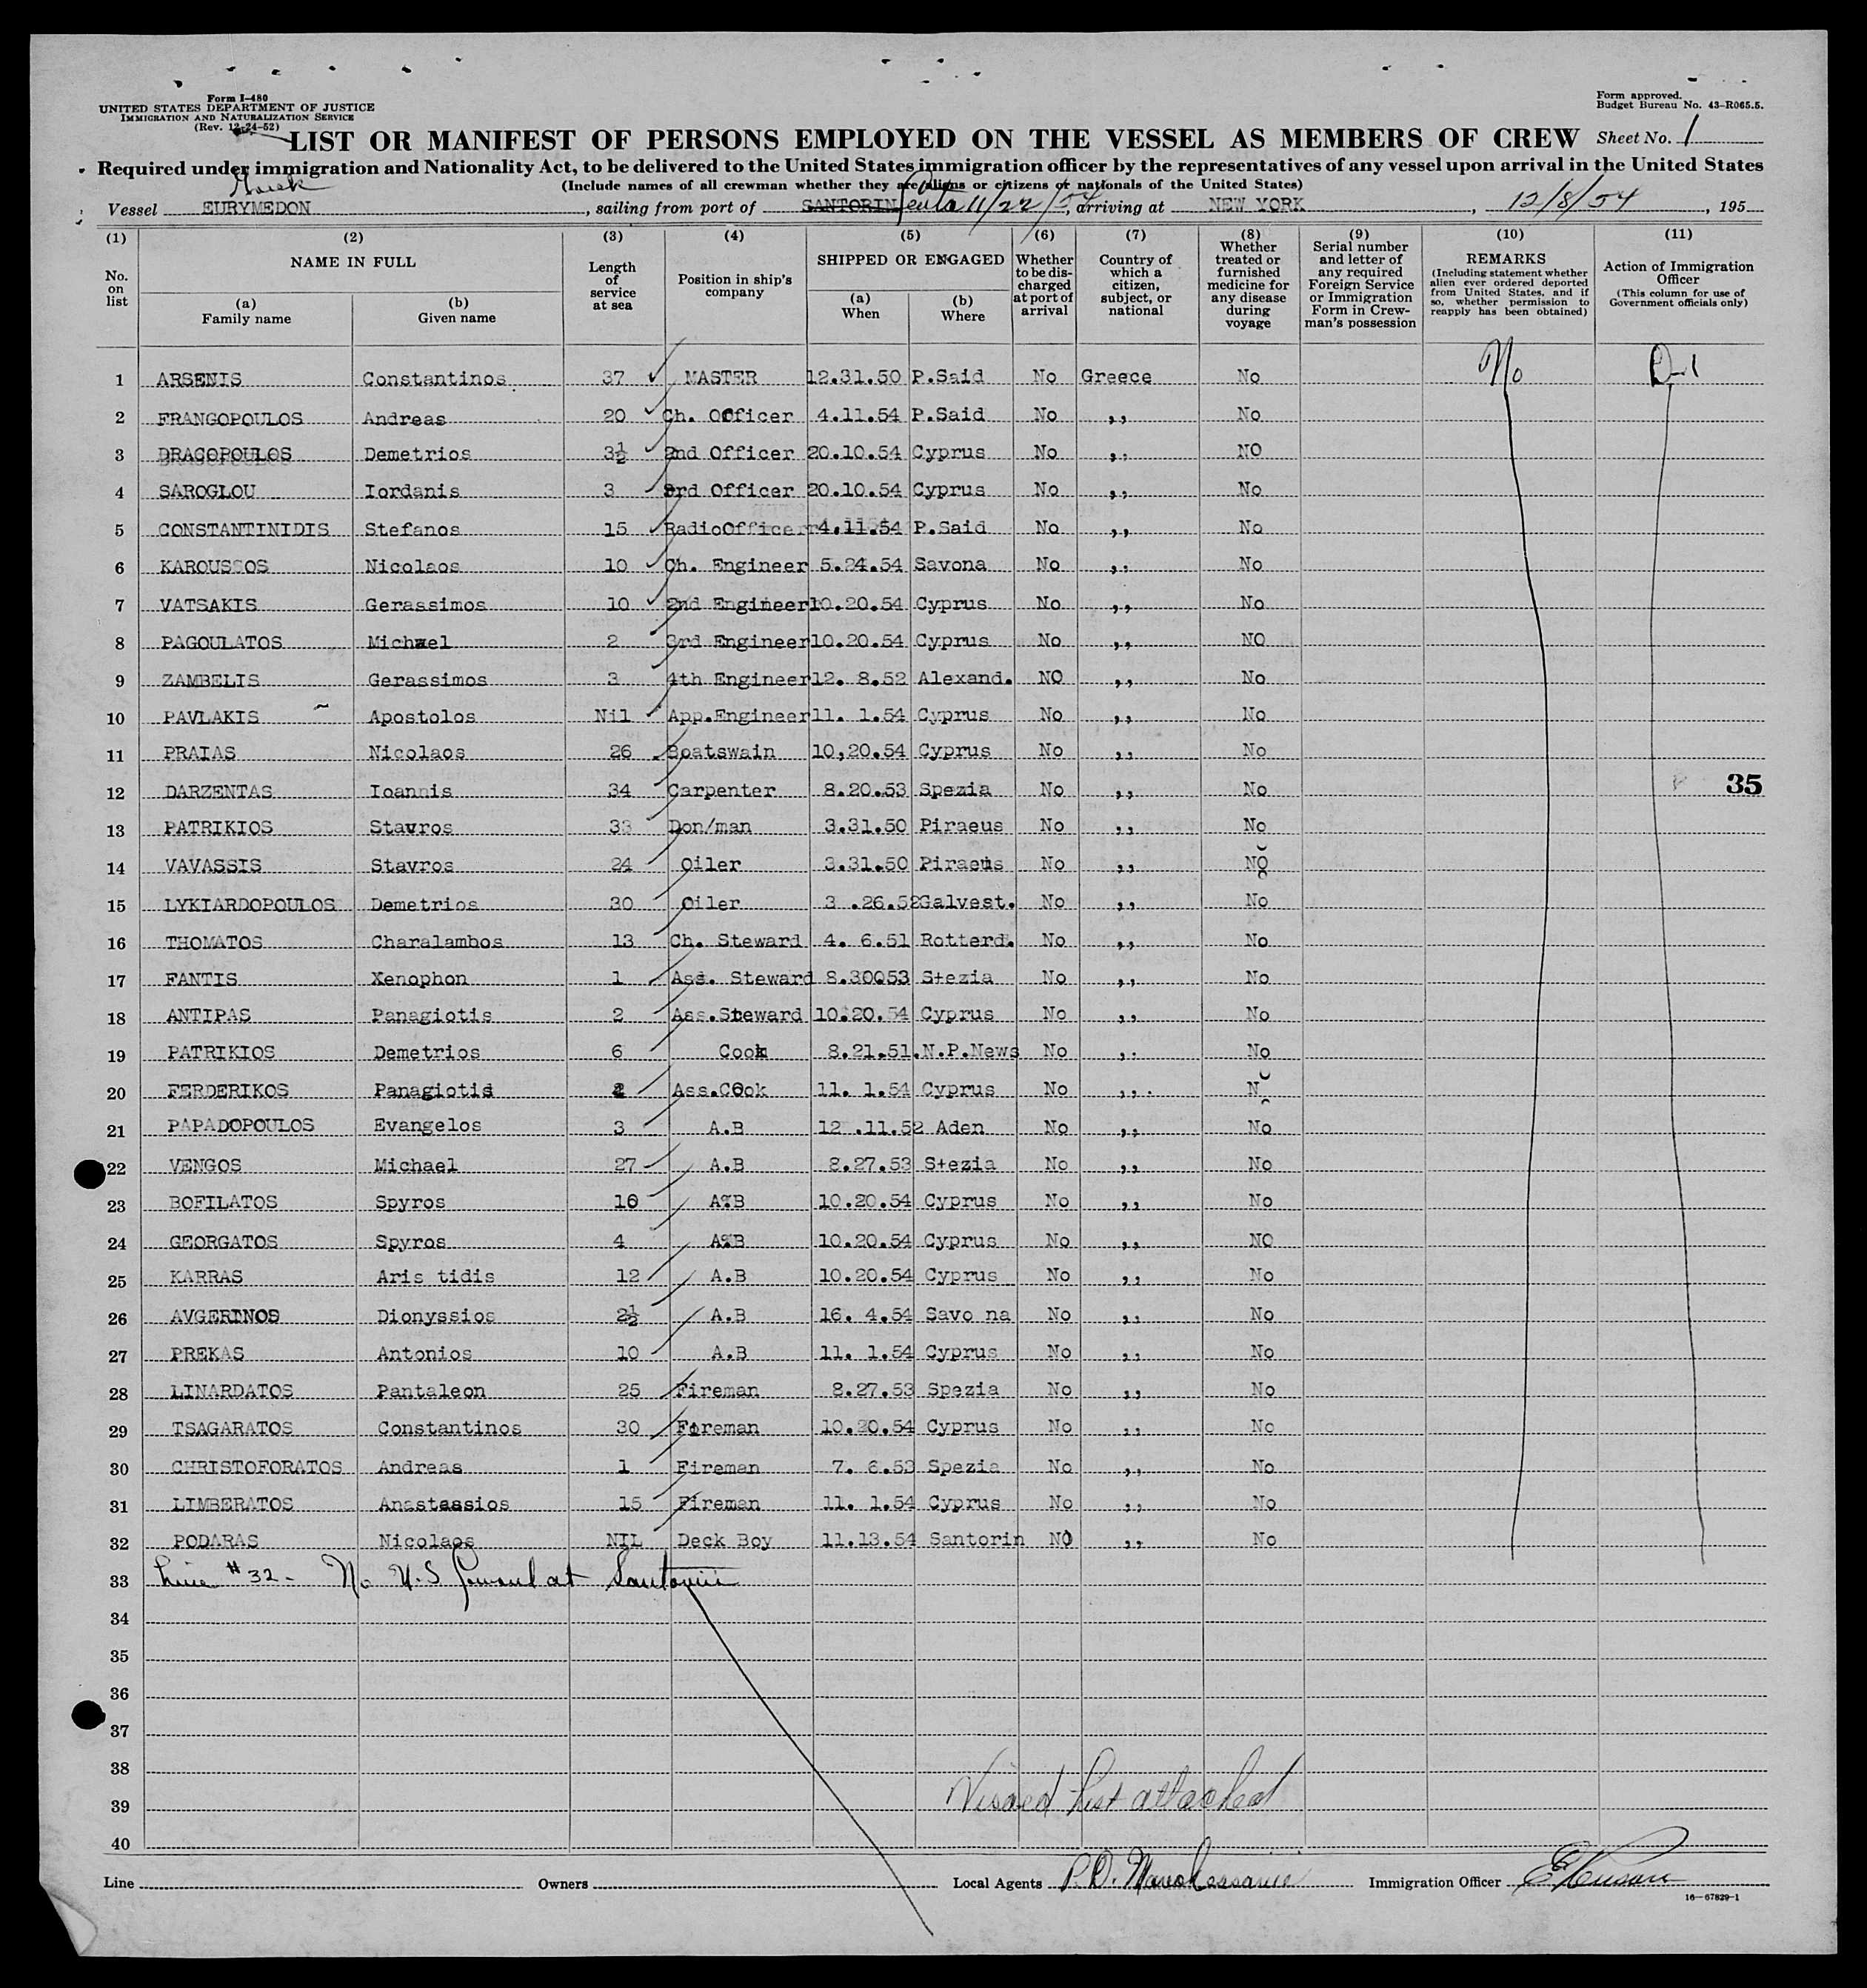 Form I-480
UNITED STATES DEPARTMENT OF JUSTICE
IMMIGRATION AND NATURALIZATION SERVICE
(Rev. 12-24-52)
Form approved.
Budget Bureau No. 43-R065.5.
LIST OR MANIFEST OF PERSONS EMPLOYED ON THE VESSEL AS MEMBERS OF CREW Sheet No. 1
Required under immigration and Nationality Act, to be delivered to the United States immigration officer by the representatives of any vessel upon arrival in the United States
(Include names of all crewman whether they are aliens or citizens or nationals of the United States)
Greek
Vessel EURYMEDON, sailing from port of SANTORIN Ceuta 11/22/54, arriving at NEW YORK, 12/8/54, 195
(1) (2) (3) (4) (5) (6) (7) (8) (9) (10) (11)
No. on list
NAME IN FULL
(a) Family name
(b) Given name
Length of service at sea
Position in ship's company
SHIPPED OR ENGAGED
(a) When
(b) Where
Whether to be discharged at port of arrival
Country of which a citizen, subject, or national
Whether treated or furnished medicine for any disease during voyage
Serial number and letter of any required Foreign Service or Immigration Form in Crewman's possession
REMARKS
(Including statement whether alien ever ordered deported from United States, and if so, whether permission to reapply has been obtained)
Action of Immigration Officer
(This column for use of Government officials only)
1 ARSENIS Constantinos 37 MASTER 12.31.50 P.Said No Greece No No D-1
2 FRANGOPOULOS Andreas 20 Ch. Officer 4.11.54 P.Said No ,, No
3 DRACOPOULOS Demetrios 3½ 2nd Officer 20.10.54 Cyprus No ,, NO
4 SAROGLOU Iordanis 3 3rd Officer 20.10.54 Cyprus No ,, No
5 CONSTANTINIDIS Stefanos 15 RadioOfficer 4.11.54 P.Said No ,, No
6 KAROUSSOS Nicolaos 10 Ch. Engineer 5.24.54 Savona No ,, No
7 VATSAKIS Gerassimos 10 2nd Engineer 10.20.54 Cyprus No ,, No
8 PAGOULATOS Michael 2 3rd Engineer 10.20.54 Cyprus No ,, NO
9 ZAMBELIS Gerassimos 3 4th Engineer 12. 8.52 Alexand. NO ,, No
10 PAVLAKIS Apostolos Nil App.Engineer 11. 1.54 Cyprus No ,, No
11 PRAIAS Nicolaos 26 Boatswain 10,20.54 Cyprus No ,, No
12 DARZENTAS Ioannis 34 Carpenter 8.20.53 Spezia No ,, No 35
13 PATRIKIOS Stavros 33 Don/man 3.31.50 Piraeus No ,, No
14 VAVASSIS Stavros 24 Oiler 3.31.50 Piraeus No ,, NO
15 LYKIARDOPOULOS Demetrios 30 Oiler 3 .26.52 Galvest. No ,, No
16 THOMATOS Charalambos 13 Ch. Steward 4. 6.51 Rotterd. No ,, No
17 FANTIS Xenophon 1 Ass. Steward 8.30053 S+ezia No ,, No
18 ANTIPAS Panagiotis 2 Ass.Steward 10.20.54 Cyprus No ,, No
19 PATRIKIOS Demetrios 6 Cook 8.21.51. N.P.News No ,. No
20 FERDERIKOS Panagiotis Ass.COok 11. 1.54 Cyprus No ,,. N
21 PAPADOPOULOS Evangelos 3 A.B 12 .11.52 Aden No ,, No
22 VENGOS Michael 27 A.B 8.27.53 S+ezia No ,, No
23 BOFILATOS Spyros 10 A.B 10.20.54 Cyprus No ,, No
24 GEORGATOS Spyros 4 A%B 10.20.54 Cyprus No ,, NO
25 KARRAS Aris tidis 12 A.B 10.20.54 Cyprus No ,, No
26 AVGERINOS Dionyssios 2½ A.B 16. 4.54 Savo na No ,, No
27 PREKAS Antonios 10 A.B 11. 1.54 Cyprus No ,, No
28 LINARDATOS Pantaleon 25 Fireman 8.27.53 Spezia No ,, No
29 TSAGARATOS Constantinos 30 Fireman 10.20.54 Cyprus No ,, No
30 CHRISTOFORATOS Andreas 1 Fireman 7. 6.53 Spezia No ,, No
31 LIMBERATOS Anastassios 15 Fireman 11. 1.54 Cyprus No ,, No
32 PODARAS Nicolaos NIL Deck Boy 11.13.54 Santorin NO ,, No
33 Line #32 - No U.S Consul at Santorin
34
35
36
37
38
39 Visaed List attached
40
Line Owners Local Agents P.D. Immigration Officer
16—67829-1